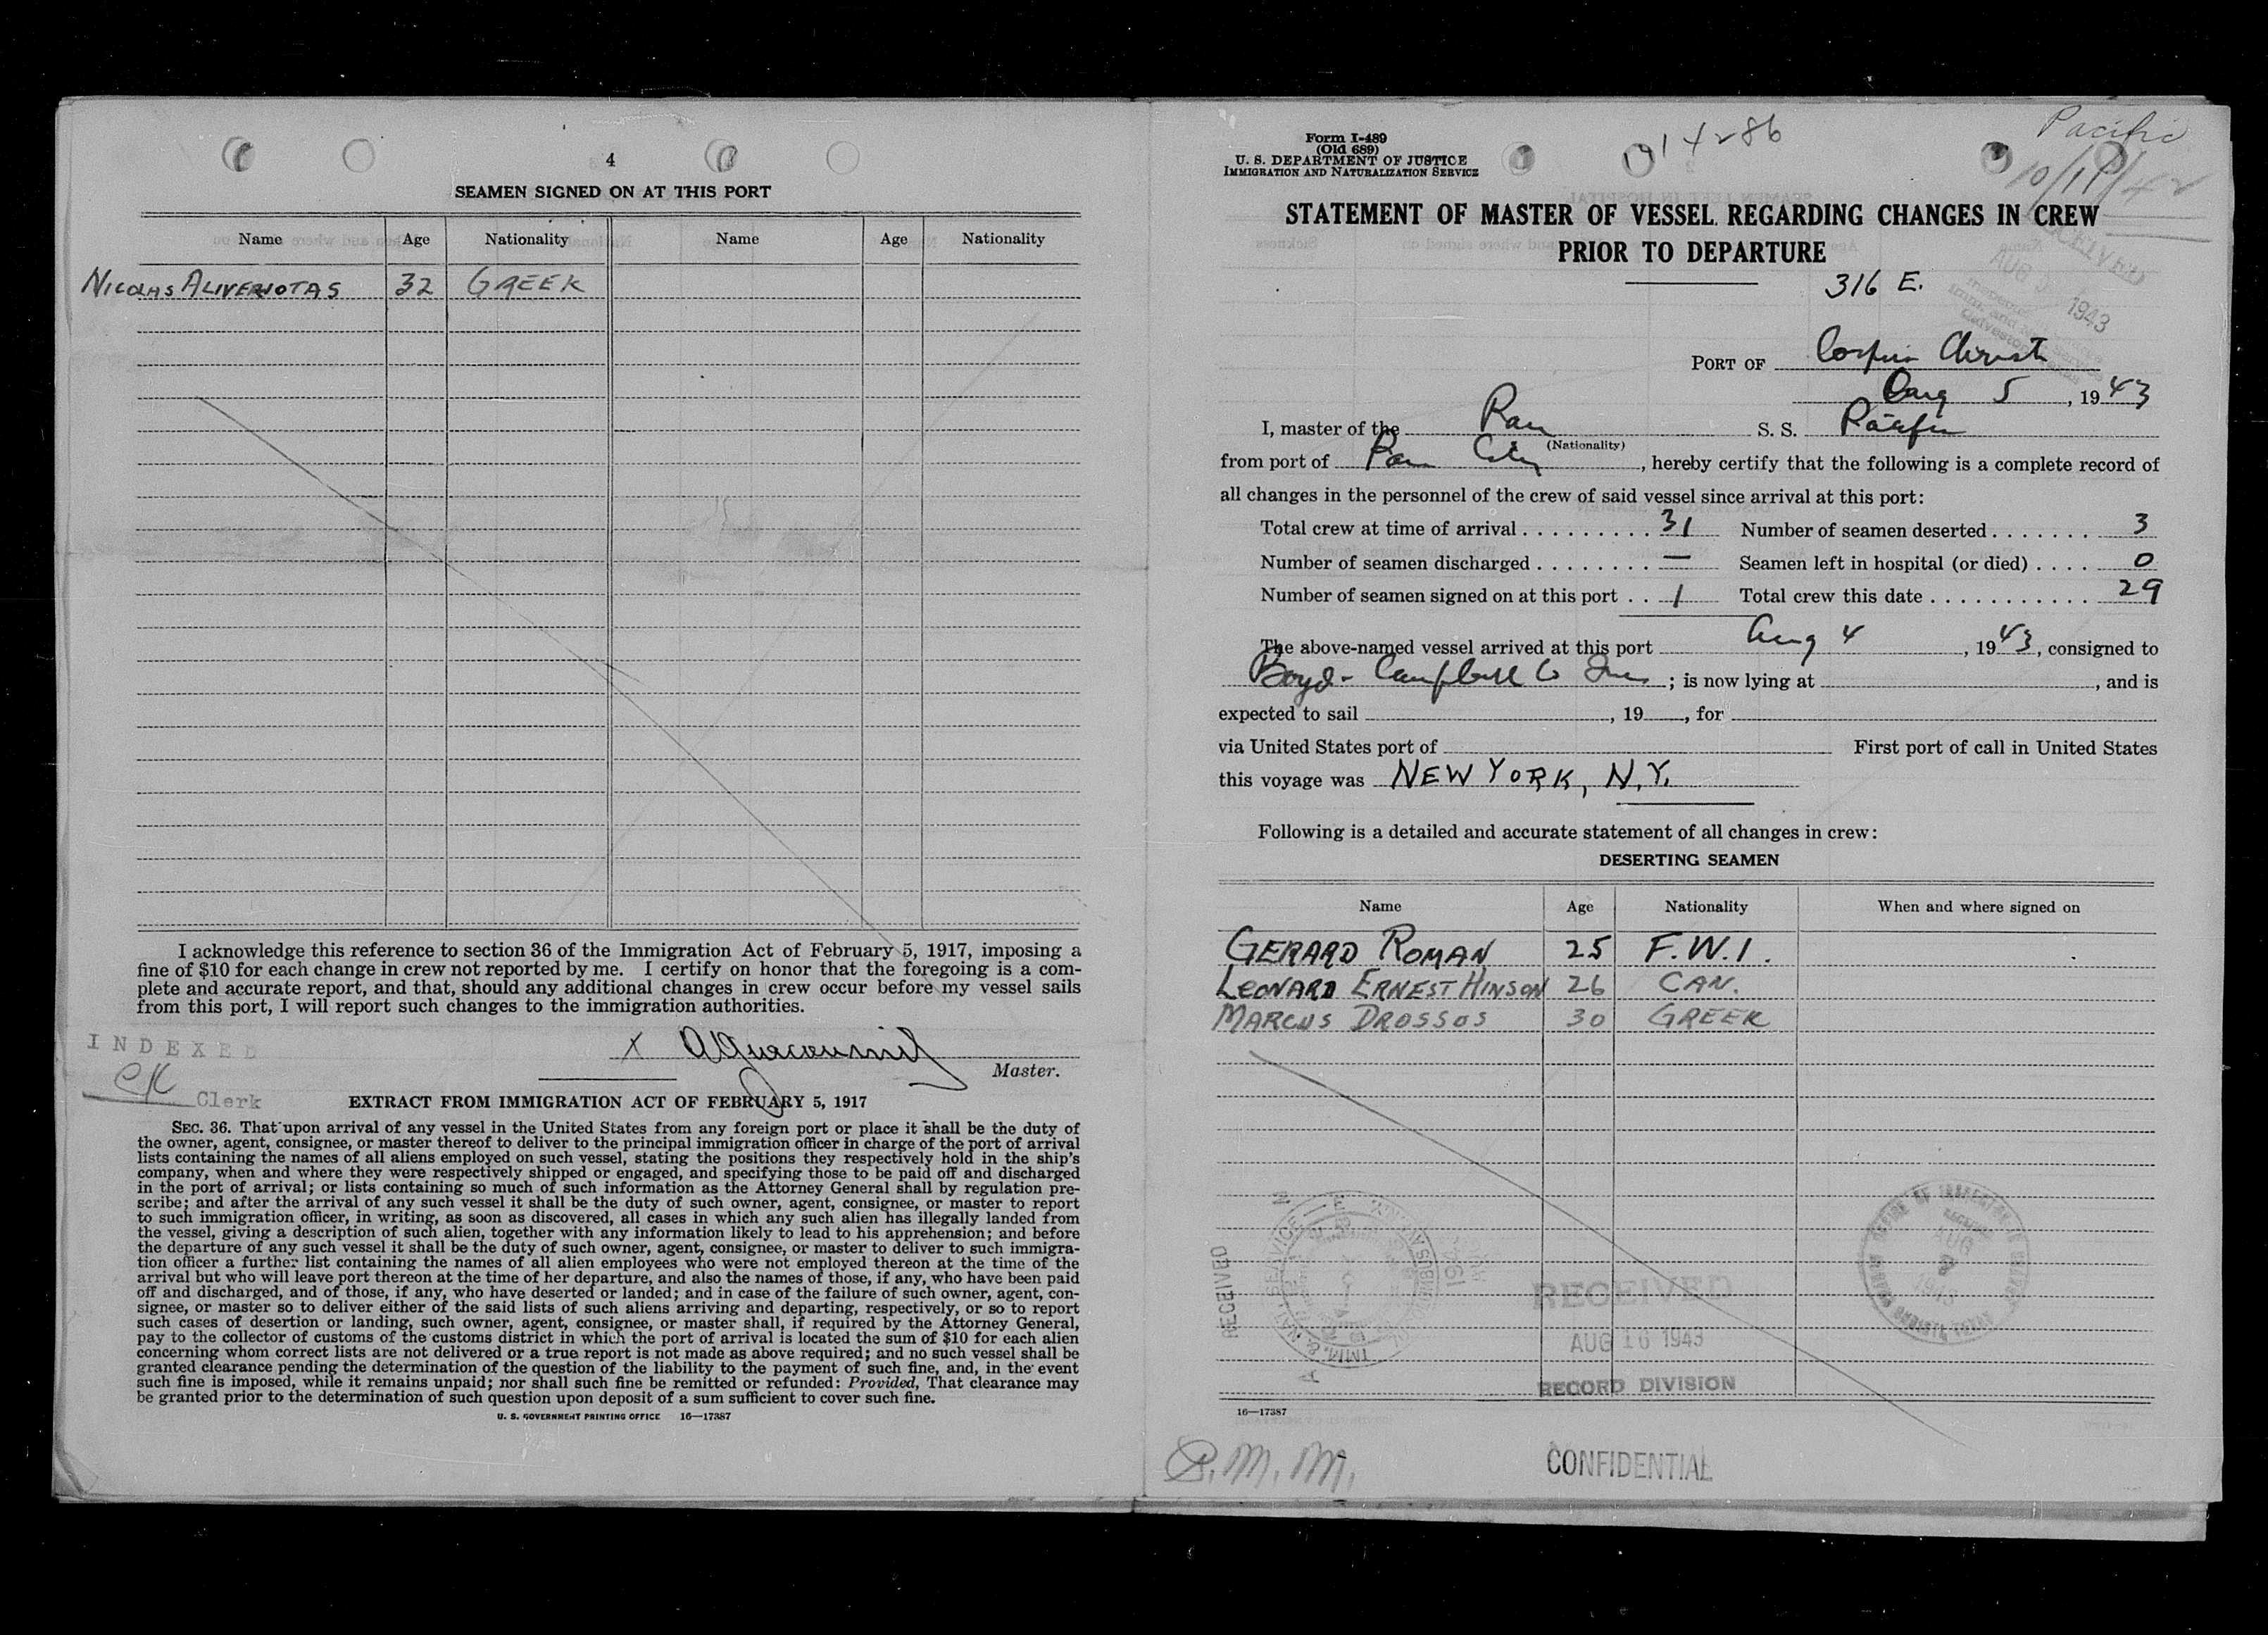 4
SEAMEN SIGNED ON AT THIS PORT
Name Age Nationality Name Age Nationality
NICOLAS ALIVERIOTAS 32 GREEK
I acknowledge this reference to section 36 of the Immigration Act of February 5, 1917, imposing a
fine of $10 for each change in crew not reported by me. I certify on honor that the foregoing is a com-
plete and accurate report, and that, should any additional changes in crew occur before my vessel sails
from this port, I will report such changes to the immigration authorities.
INDEXED
X
Master.
Clerk
EXTRACT FROM IMMIGRATION ACT OF FEBRUARY 5, 1917
SEC. 36. That upon arrival of any vessel in the United States from any foreign port or place it shall be the duty of
the owner, agent, consignee, or master thereof to deliver to the principal immigration officer in charge of the port of arrival
lists containing the names of all aliens employed on such vessel, stating the positions they respectively hold in the ship's
company, when and where they were respectively shipped or engaged, and specifying those to be paid off and discharged
in the port of arrival; or lists containing so much of such information as the Attorney General shall by regulation pre-
scribe; and after the arrival of any such vessel it shall be the duty of such owner, agent, consignee, or master to report
to such immigration officer, in writing, as soon as discovered, all cases in which any such alien has illegally landed from
the vessel, giving a description of such alien, together with any information likely to lead to his apprehension; and before
the departure of any such vessel it shall be the duty of such owner, agent, consignee, or master to deliver to such immigra-
tion officer a further list containing the names of all alien employees who were not employed thereon at the time of the
arrival but who will leave port thereon at the time of her departure, and also the names of those, if any, who have been paid
off and discharged, and of those, if any, who have deserted or landed; and in case of the failure of such owner, agent, con-
signee, or master so to deliver either of the said lists of such aliens arriving and departing, respectively, or so to report
such cases of desertion or landing, such owner, agent, consignee, or master shall, if required by the Attorney General,
pay to the collector of customs of the customs district in which the port of arrival is located the sum of $10 for each alien
concerning whom correct lists are not delivered or a true report is not made as above required; and no such vessel shall be
granted clearance pending the determination of the question of the liability to the payment of such fine, and, in the event
such fine is imposed, while it remains unpaid; nor shall such fine be remitted or refunded: Provided, That clearance may
be granted prior to the determination of such question upon deposit of a sum sufficient to cover such fine.
U. S. GOVERNMENT PRINTING OFFICE 16—17387
Form I-489
(Old 689)
U. S. DEPARTMENT OF JUSTICE
IMMIGRATION AND NATURALIZATION SERVICE
Pacific
STATEMENT OF MASTER OF VESSEL REGARDING CHANGES IN CREW
PRIOR TO DEPARTURE
316 E.
RECEIVED
AUG 1943
PORT OF Corpus Christi
Aug 5, 1943
I, master of the Pan S. S. Pacific
(Nationality)
from port of Pan City, hereby certify that the following is a complete record of
all changes in the personnel of the crew of said vessel since arrival at this port:
Total crew at time of arrival 31 Number of seamen deserted 3
Number of seamen discharged — Seamen left in hospital (or died) 0
Number of seamen signed on at this port 1 Total crew this date 29
The above-named vessel arrived at this port Aug 4, 1943, consigned to
Boyd-Campbell Co Inc; is now lying at , and is
expected to sail , 19 , for
via United States port of First port of call in United States
this voyage was NEW YORK, N.Y.
Following is a detailed and accurate statement of all changes in crew:
DESERTING SEAMEN
Name Age Nationality When and where signed on
GERARD ROMAN 25 F.W.I.
LEONARD ERNEST HINSON 26 CAN.
MARCUS DROSSOS 30 GREEK
RECEIVED
RECEIVED
AUG 16 1943
RECORD DIVISION
16—17387
P.M.M.
CONFIDENTIAL